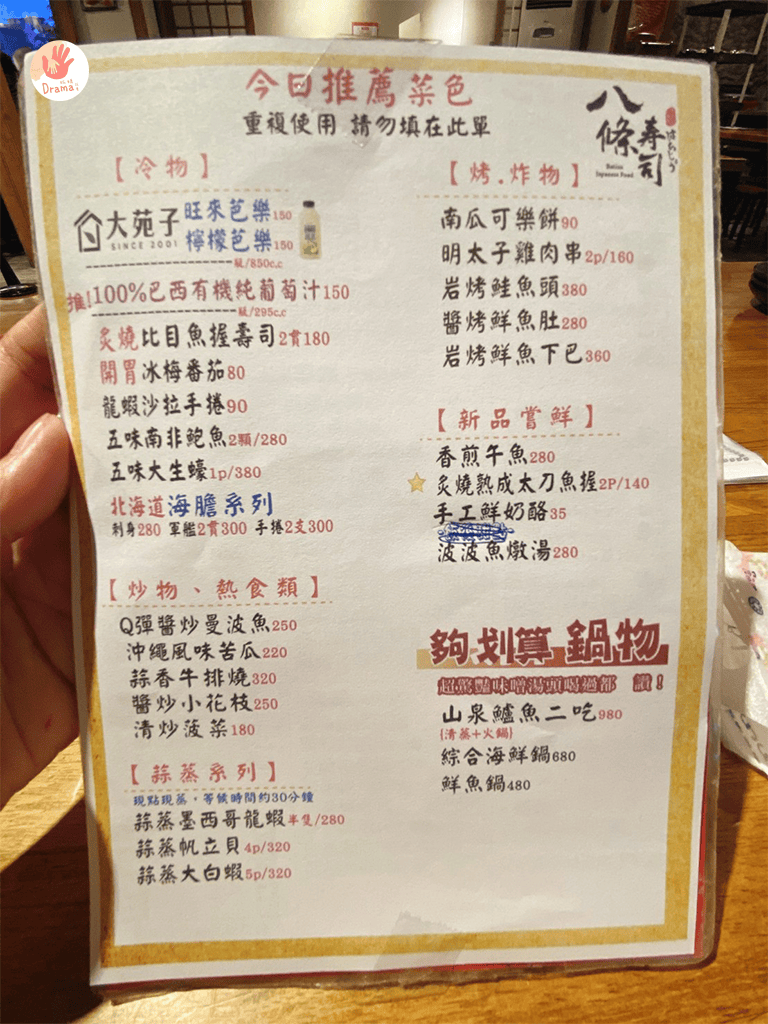 Drama
今日推薦菜色
重複使用 請勿填在此單
八條壽司
Hatizo
Japanese Food
【冷物】
大苑子
SINCE 2001
旺來芭樂150
檸檬芭樂150
瓶/850c.c
推!100%巴西有機純葡萄汁150
瓶/295c.c
炙燒比目魚握壽司2貫180
開胃冰梅番茄80
龍蝦沙拉手捲90
五味南非鮑魚2顆/280
五味大生蠔1p/380
北海道海膽系列
刺身280 軍艦2貫300 手捲2支300
【炒物、熱食類】
Q彈醬炒曼波魚250
沖繩風味苦瓜220
蒜香牛排燒320
醬炒小花枝250
清炒菠菜180
【蒜蒸系列】
現點現蒸,等候時間約30分鐘
蒜蒸墨西哥龍蝦半隻/280
蒜蒸帆立貝4p/320
蒜蒸大白蝦5p/320
【烤.炸物】
南瓜可樂餅90
明太子雞肉串2p/160
岩烤鮭魚頭380
醬烤鮮魚肚280
岩烤鮮魚下巴360
【新品嘗鮮】
香煎午魚280
炙燒熟成太刀魚握2P/140
手工鮮奶酪35
波波魚燉湯280
夠划算鍋物
超驚豔味噌湯頭喝過都 讚!
山泉鱸魚二吃980
(清蒸+火鍋)
綜合海鮮鍋680
鮮魚鍋480